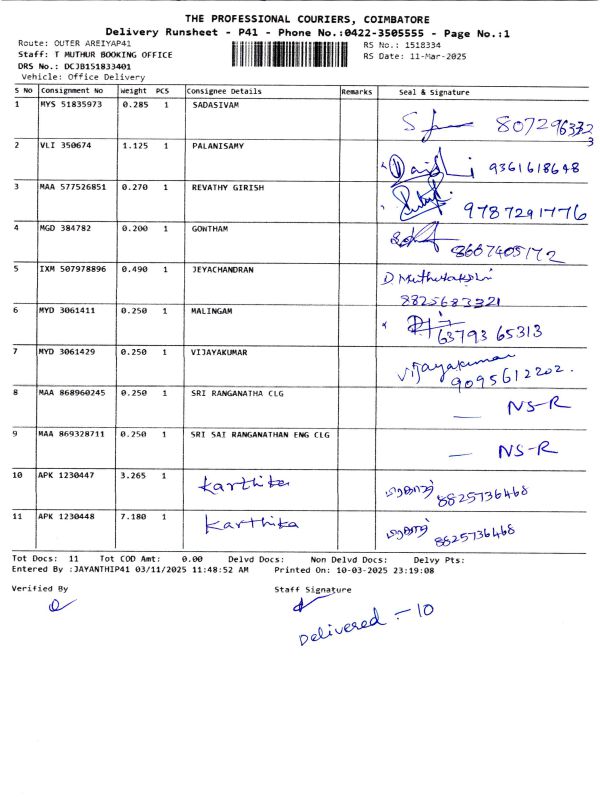 THE PROFESSIONAL COURIERS, COIMBATORE
Delivery Runsheet - P41 - Phone No.:0422-3505555 - Page No.:1
Route: OUTER AREIYAP41 RS No.: 1518334
Staff: T MUTHUR BOOKING OFFICE RS Date: 11-Mar-2025
DRS No.: DCJB151833401
Vehicle: Office Delivery
S No Consignment No Weight PCS Consignee Details Remarks Seal & Signature
1 MYS 51835973 0.285 1 SADASIVAM
2 VLI 350674 1.125 1 PALANISAMY 9361618648
3 MAA 577526851 0.270 1 REVATHY GIRISH 9787291776
4 MGD 384782 0.200 1 GONTHAM 8667405172
5 IXM 507978896 0.490 1 JEYACHANDRAN
8825683321
6 MYD 3061411 0.250 1 MALINGAM 63793 65313
7 MYD 3061429 0.250 1 VIJAYAKUMAR Vijayakumar
9095612202.
8 MAA 868960245 0.250 1 SRI RANGANATHA CLG — NS-R
9 MAA 869328711 0.250 1 SRI SAI RANGANATHAN ENG CLG — NS-R
10 APK 1230447 3.265 1 Karthika 8825736468
11 APK 1230448 7.180 1 Karthika 8825736468
Tot Docs: 11 Tot COD Amt: 0.00 Delvd Docs: Non Delvd Docs: Delvy Pts:
Entered By :JAYANTHIP41 03/11/2025 11:48:52 AM Printed On: 10-03-2025 23:19:08
Verified By Staff Signature
Delivered :- 10